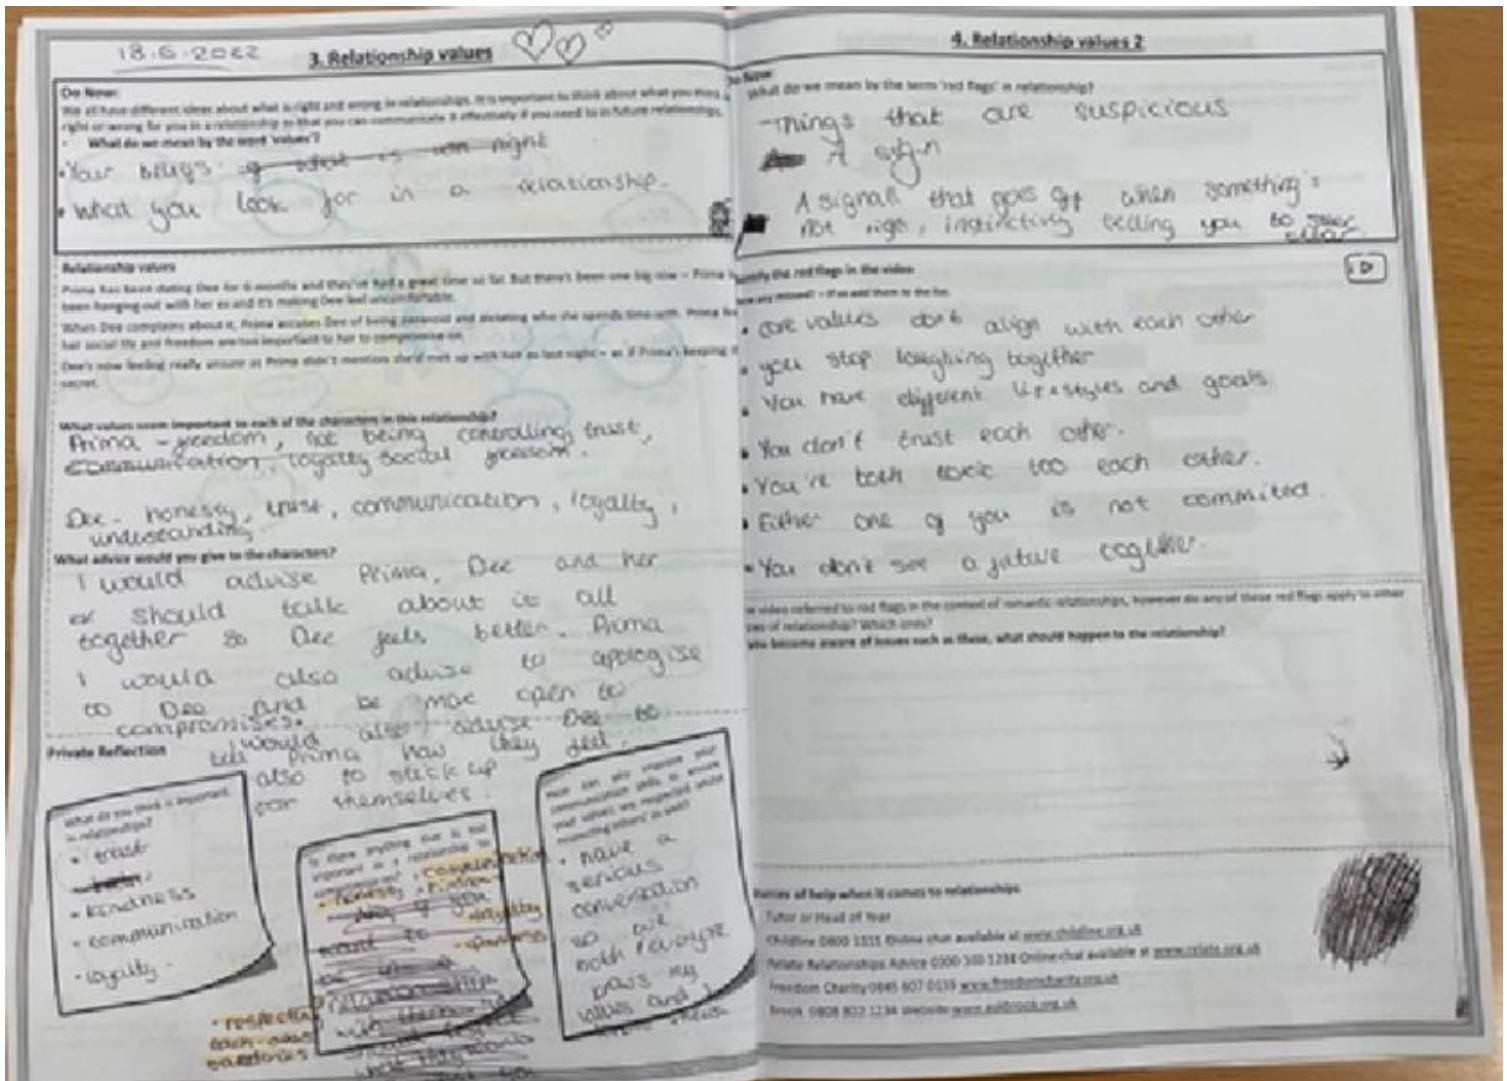 18.6.2022
3. Relationship values
Do Now:
We all have different ideas about what is right and wrong in relationships. It is important to think about what you think is
right or wrong for you in a relationship so that you can communicate it effectively if you need to in future relationships.
What do we mean by the word 'values'?
• Your beliefs. of what is right
• What you look for in a relationship.
Relationship values
Prima has been dating Dee for 6 months and they've had a great time so far. But there's been one big row – Prima
been hanging out with her ex and it's making Dee feel uncomfortable.
When Dee complains about it, Prima accuses Dee of being paranoid and dictating who she spends time with. Prima
her social life and freedom are too important to her to compromise on.
Dee's now feeling really unsure as Prima didn't mention she'd met up with her ex last night – as if Prima's keeping it
secret.
What values seem important to each of the characters in this relationship?
Prima – freedom, not being controlling, trust,
communication, loyalty social freedom.
Dee – honesty, trust, communication, loyalty,
understanding.
What advice would you give to the characters?
I would advise Prima, Dee and her
ex should talk about it all
together so Dee feels better. Prima
I would also advise to apologise
to Dee and be more open to
compromises.
I would also advise Dee to
tell Prima how they feel.
also to stick up
for themselves.
Private Reflection
What do you think is important
in relationships?
• trust
• kindness
• communication
• loyalty.
Is there anything that is too
important in a relationship to
compromise?
• communication
• honesty
• loyalty
• respecting
each other
How can you improve your
communication skills to ensure
your values are respected whilst
respecting others' as well?
• have a
serious
conversation
so we
both
values and
4. Relationship values 2
Do Now:
What do we mean by the term 'red flags' in relationship?
-Things that are suspicious
A sign
A signall that goes off when something's
not righ, instinctivly telling you to steer
clear.
Identify the red flags in the video
• core values dont align with each other
• you stop laughing together
• You have different lifestyles and goals
• You don't trust each other.
• You're both toxic too each other.
• Either one of you is not commited.
• You don't see a future together.
video referred to red flags in the context of romantic relationships, however do any of these red flags apply to other
of relationship? Which ones?
you become aware of issues such as these, what should happen to the relationship?
of help when it comes to relationships
Tutor or Head of Year
Childline 0800 1111 Online chat available at www.childline.org.uk
Relate Relationships Advice 0300 Online chat available at www.relate.org.uk
Freedom Charity 0845 607 0133 www.freedomcharity.org.uk
Brook